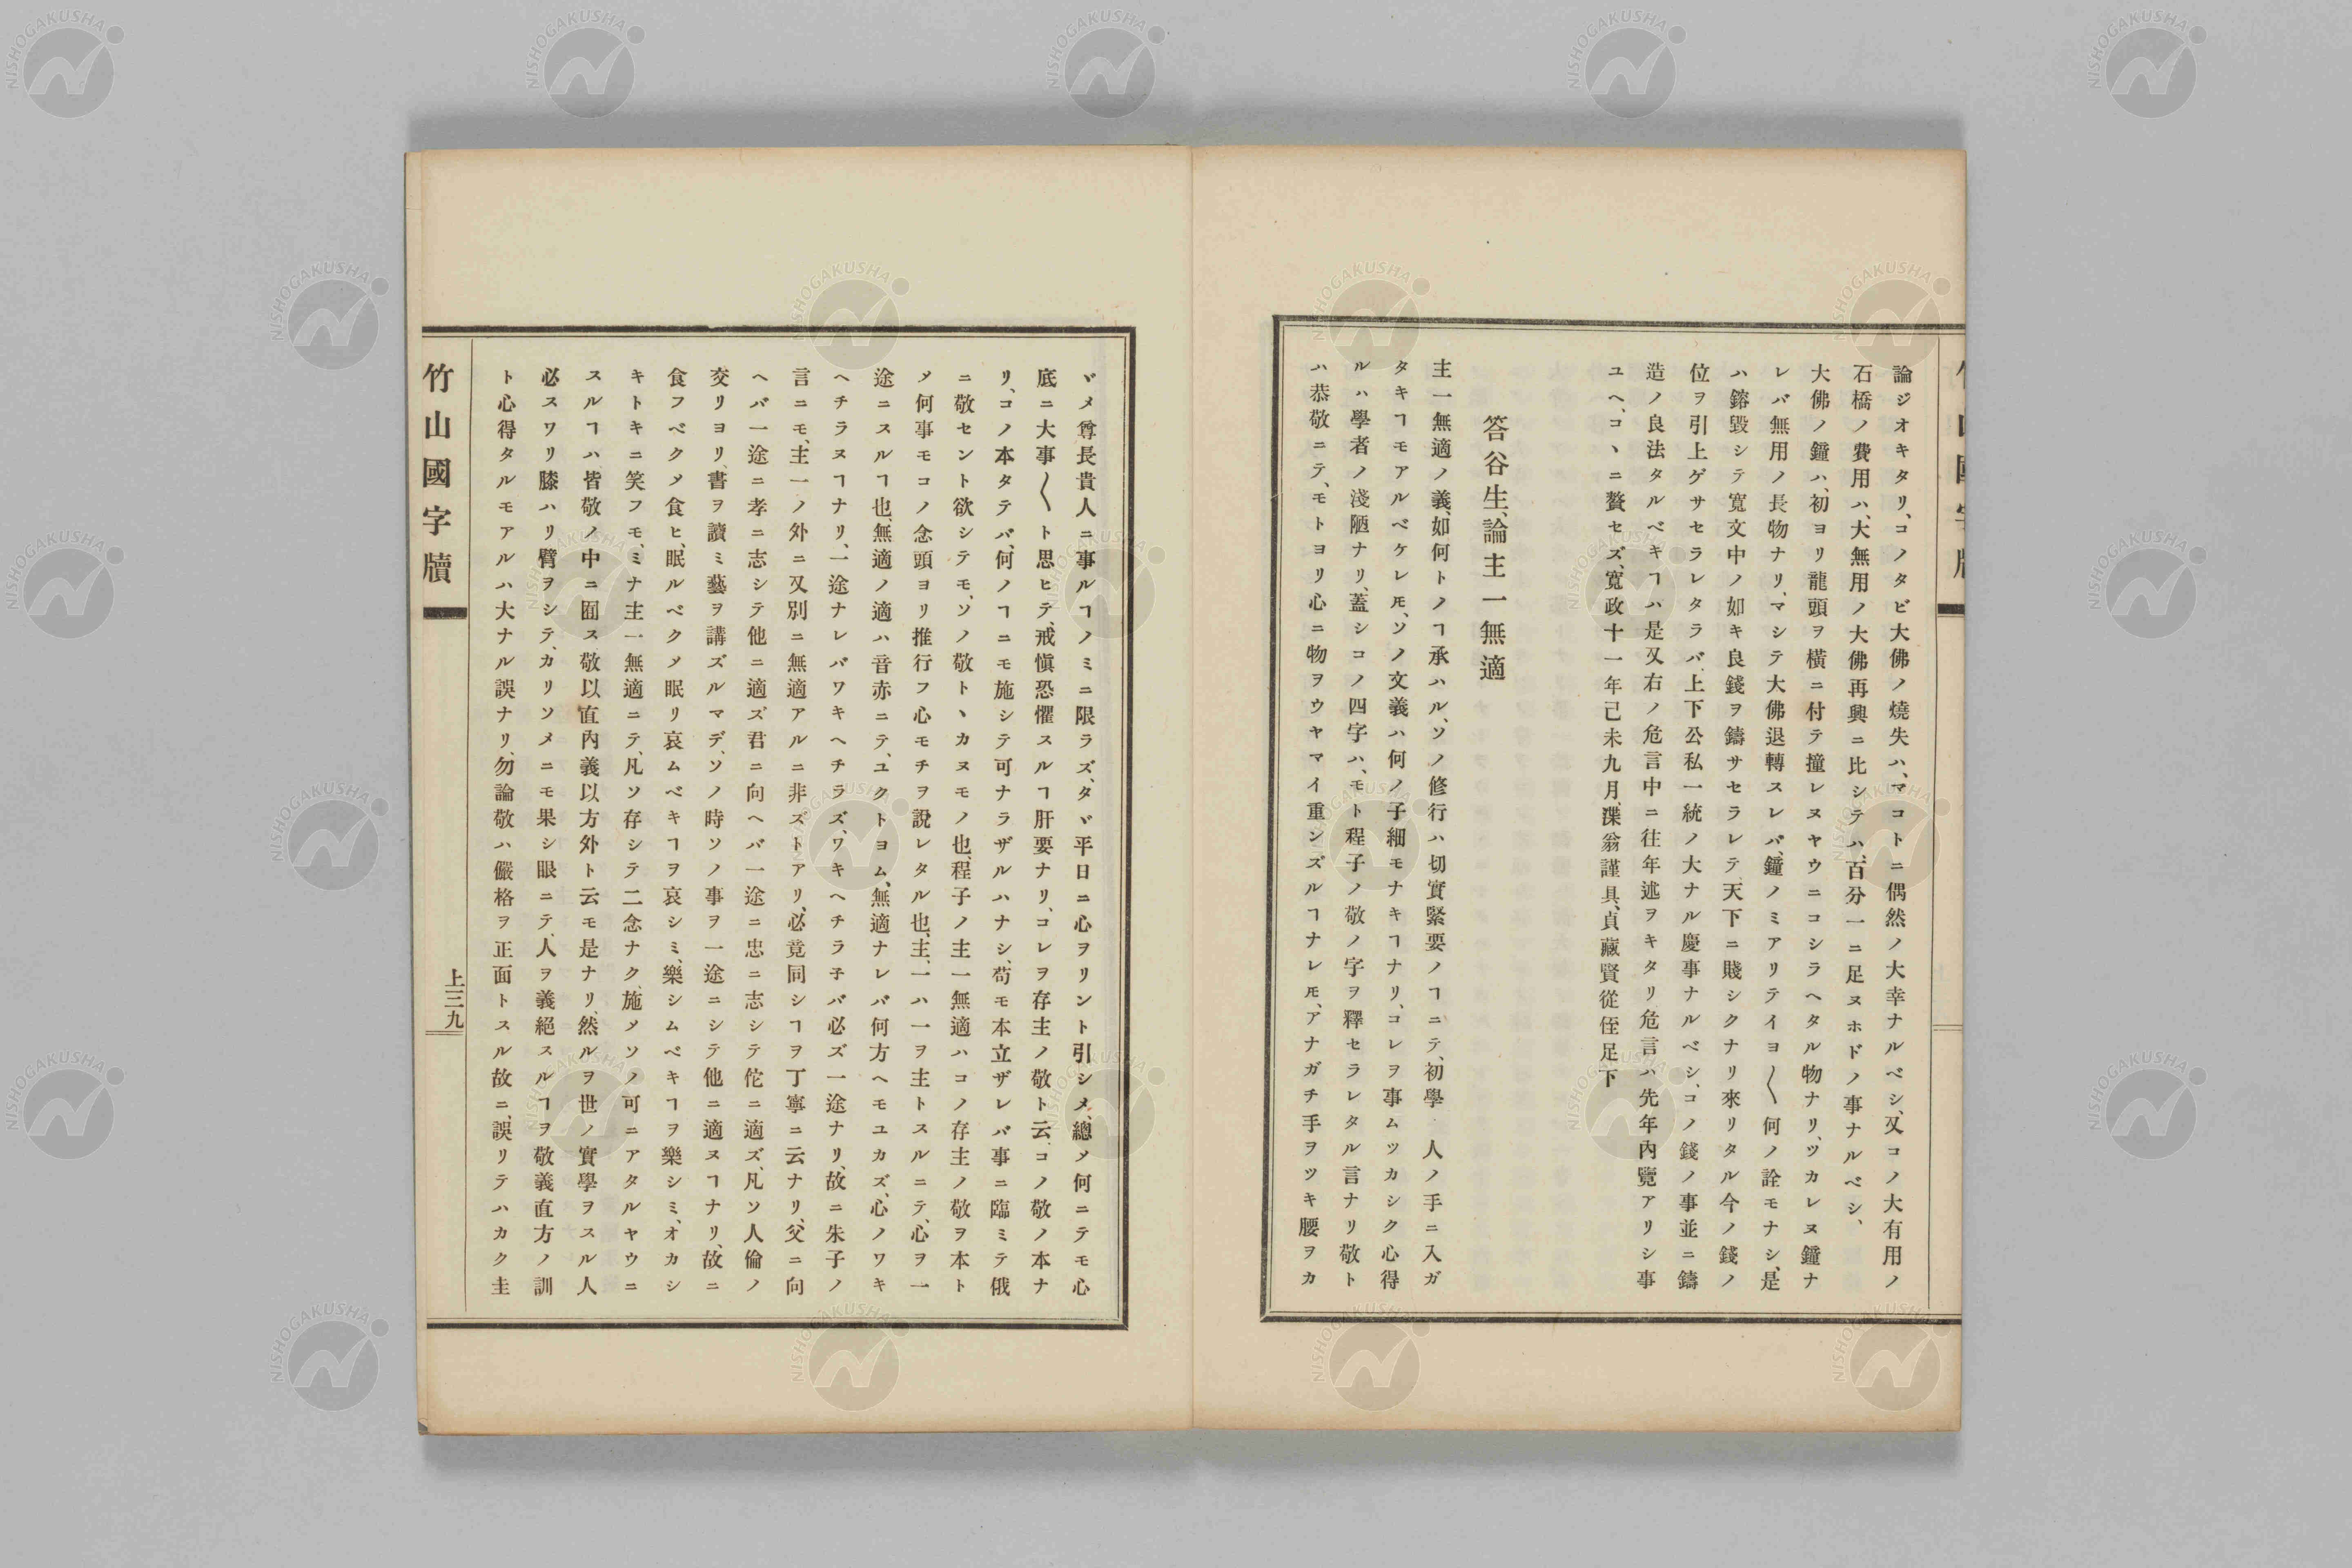 論ジオキタリ、コノタビ大佛ノ燒失ハ、マコトニ偶然ノ大幸ナルベシ、又コノ大有用ノ
石橋ノ費用ハ、大無用ノ大佛再興ニ比シテハ、百分一ニ足ヌホドノ事ナルベシ、
大佛ノ鐘ハ、初ヨリ龍頭ヲ橫ニ付テ撞レヌヤウニコシラヘタル物ナリ、ツカレヌ鐘ナ
レバ無用ノ長物ナリ、マシテ大佛退轉スレバ、鐘ノミアリテイヨ〱何ノ詮モナシ、是
ハ鎔毀シテ寬文中ノ如キ良錢ヲ鑄サセラレテ、天下ニ賤シクナリ來リタル今ノ錢ノ
位ヲ引上ゲサセラレタラバ、上下公私一統ノ大ナル慶事ナルベシ、コノ錢ノ事並ニ鑄
造ノ良法タルベキヿハ是又右ノ危言中ニ往年述ヲキタリ危言ハ先年內覽アリシ事
ユヘ、コヽニ贅セズ、寬政十一年己未九月、渫翁謹具、貞藏賢從侄足下
答谷生、論主一無適
主一無適ノ義、如何トノヿ承ハル、ソノ修行ハ切實緊要ノヿニテ、初學人ノ手ニ入ガ
タキヿモアルベケレ𪜈、ソノ文義ハ何ノ子細モナキヿナリ、コレヲ事ムツカシク心得
ルハ學者ノ淺陋ナリ、蓋シコノ四字ハ、モト程子ノ敬ノ字ヲ釋セラレタル言ナリ敬ト
ハ恭敬ニテ、モトヨリ心ニ物ヲウヤマイ重ンズルヿナレ𪜈、アナガチ手ヲツキ腰ヲカ
ヾメ尊長貴人ニ事ルヿノミニ限ラズ、タヾ平日ニ心ヲリント引シメ、總メ何ニテモ心
底ニ大事〱ト思ヒテ、戒愼恐懼スルヿ肝要ナリ、コレヲ存主ノ敬ト云、コノ敬ノ本ナ
リ、コノ本タテバ、何ノヿニモ施シテ可ナラザルハナシ、苟モ本立ザレバ事ニ臨ミテ俄
ニ敬セント欲シテモ、ソノ敬トヽカヌモノ也、程子ノ主一無適ハコノ存主ノ敬ヲ本ト
メ何事モコノ念頭ヨリ推行フ心モチヲ說レタル也、主一ハ一ヲ主トスルニテ、心ヲ一
途ニスルヿ也、無適ノ適ハ音赤ニテ、ユクトヨム、無適ナレバ何方ヘモユカズ、心ノワキ
ヘチラヌヿナリ、一途ナレバワキヘチラズ、ワキヘチラ子バ必ズ一途ナリ、故ニ朱子ノ
言ニモ、主一ノ外ニ又別ニ無適アルニ非ズトアリ、必竟同シヿヲ丁寧ニ云ナリ、父ニ向
ヘバ一途ニ孝ニ志シテ他ニ適ズ君ニ向ヘバ一途ニ忠ニ志シテ佗ニ適ズ、凡ソ人倫ノ
交リヨリ、書ヲ讀ミ藝ヲ講ズルマデ、ソノ時ソノ事ヲ一途ニシテ他ニ適ヌヿナリ、故ニ
食フベクメ食ヒ、眠ルベクメ眠リ哀ムベキヿヲ哀シミ、樂シムベキヿヲ樂シミ、オカシ
キトキニ笑フモ、ミナ主一無適ニテ、凡ソ存シテ二念ナク、施メソノ可ニアタルヤウニ
スルヿハ、皆敬ノ中ニ囿ス、敬以直內義以方外ト云モ是ナリ、然ルヲ世ノ實學ヲスル人
必スワリ膝ハリ臂ヲシテ、カリソメニモ果シ眼ニテ、人ヲ義絕スルヿヲ敬義直方ノ訓
ト心得タルモアルハ大ナル誤ナリ、勿論敬ハ儼格ヲ正面トスル故ニ、誤リテハカク圭
竹山國字牘
上三九